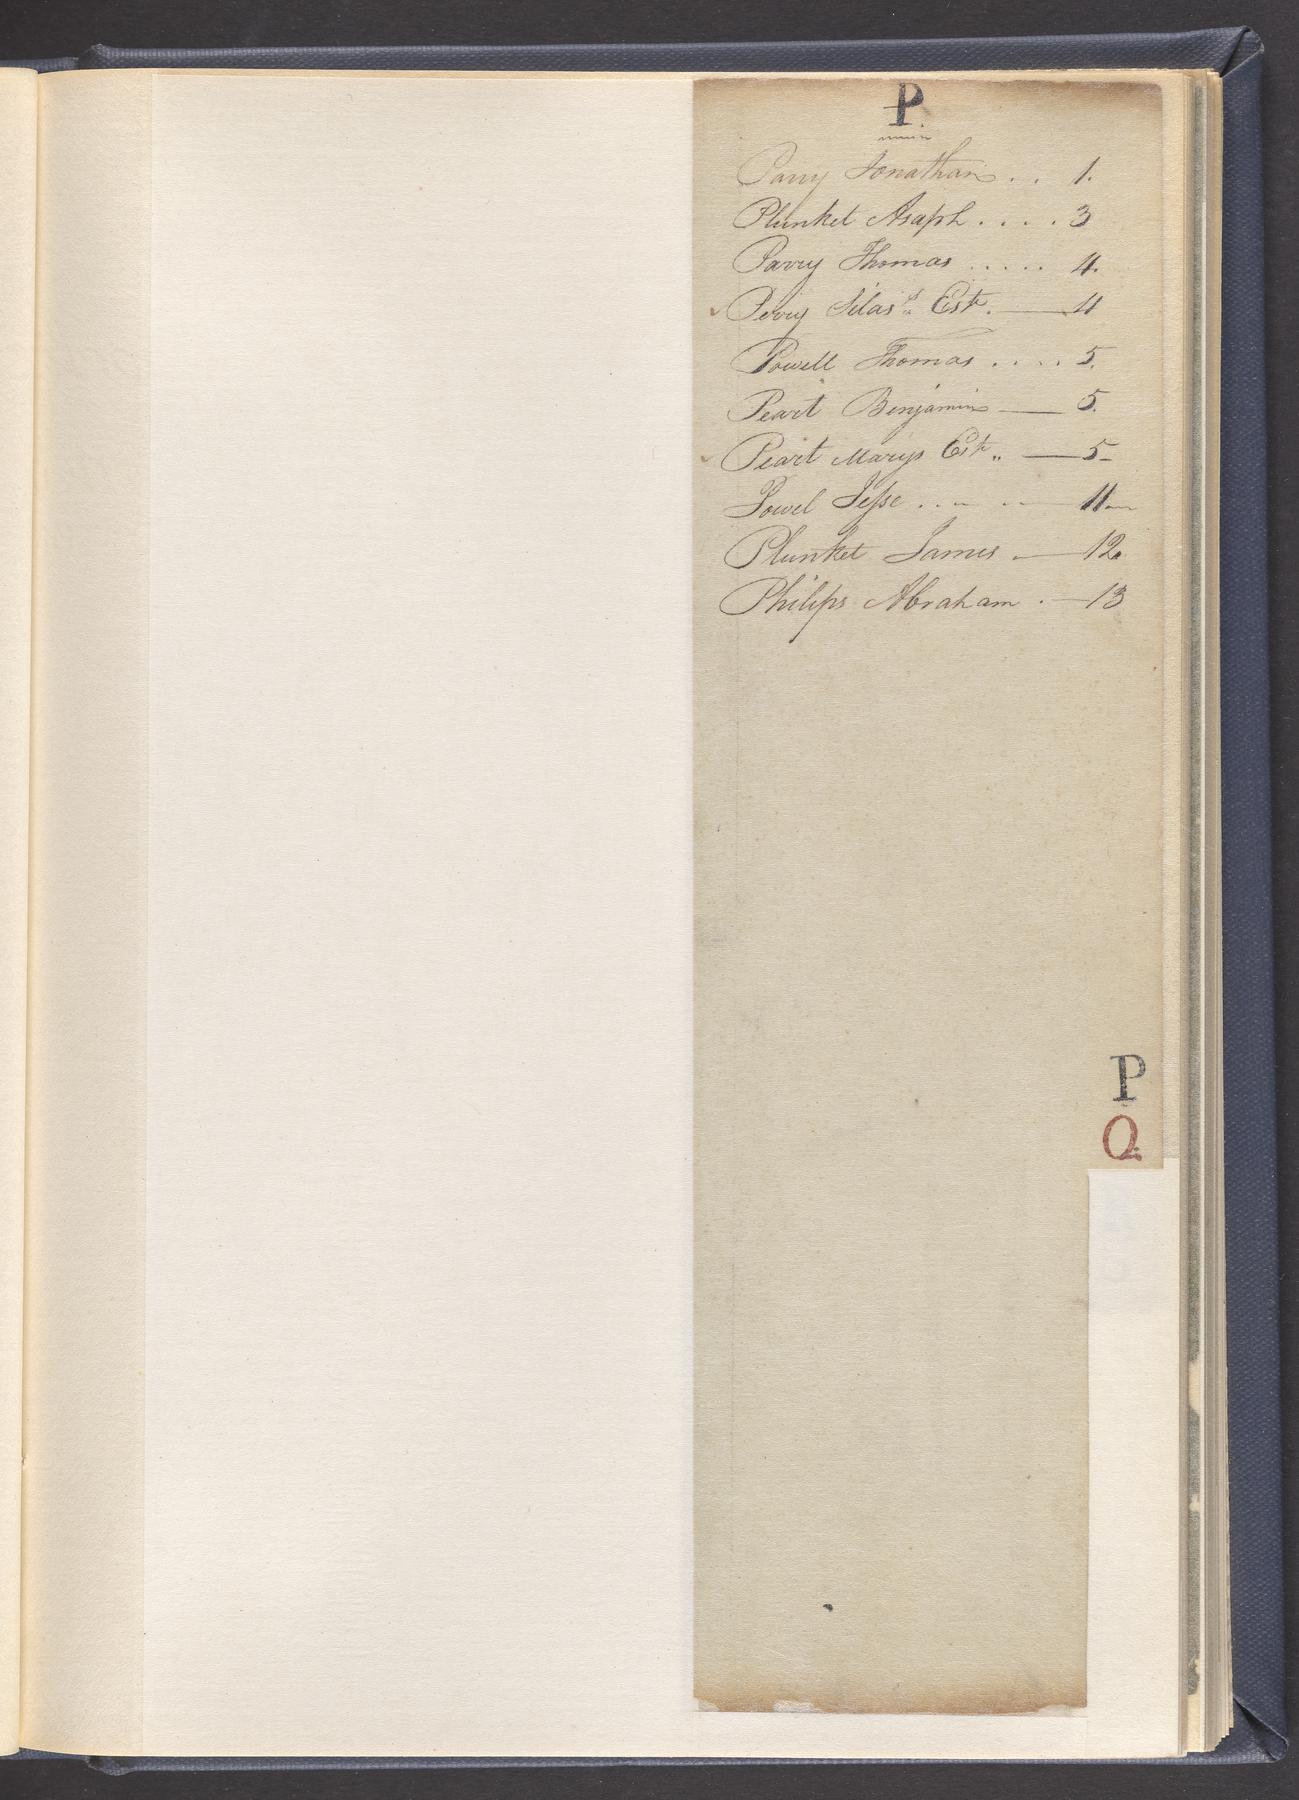 P.
Parry Jonathan . . 1.
Plunket Asaph . . . . 3
Parry Thomas . . . . . 4.
Perry Silas's Est. — 4
Powell Thomas . . . . 5.
Peart Benjamin — 5.
Peart Marys Est. — 5
Powel Jesse . . . . — 11
Plunket James . — 12.
Philips Abraham . — 13
P
Q.